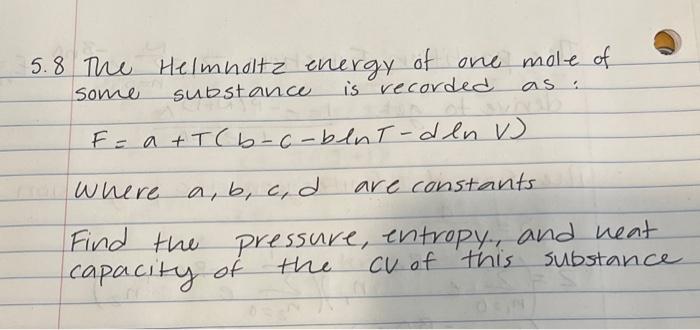 5.8 The Helmholtz energy of one mole of
some substance is recorded as :
F = a + T(b-c-blnT-dln V)
where a, b, c, d are constants
Find the pressure, entropy, and heat
capacity of the cv of this substance